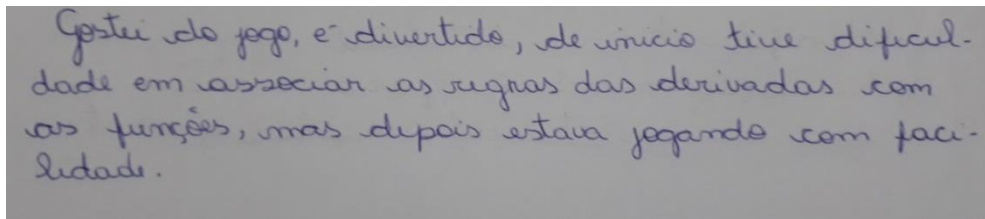 Gostei do jogo, é divertido, de inicio tive dificul-
dade em associar as regras das derivadas com
as funções, mas depois estava jogando com faci-
lidade.